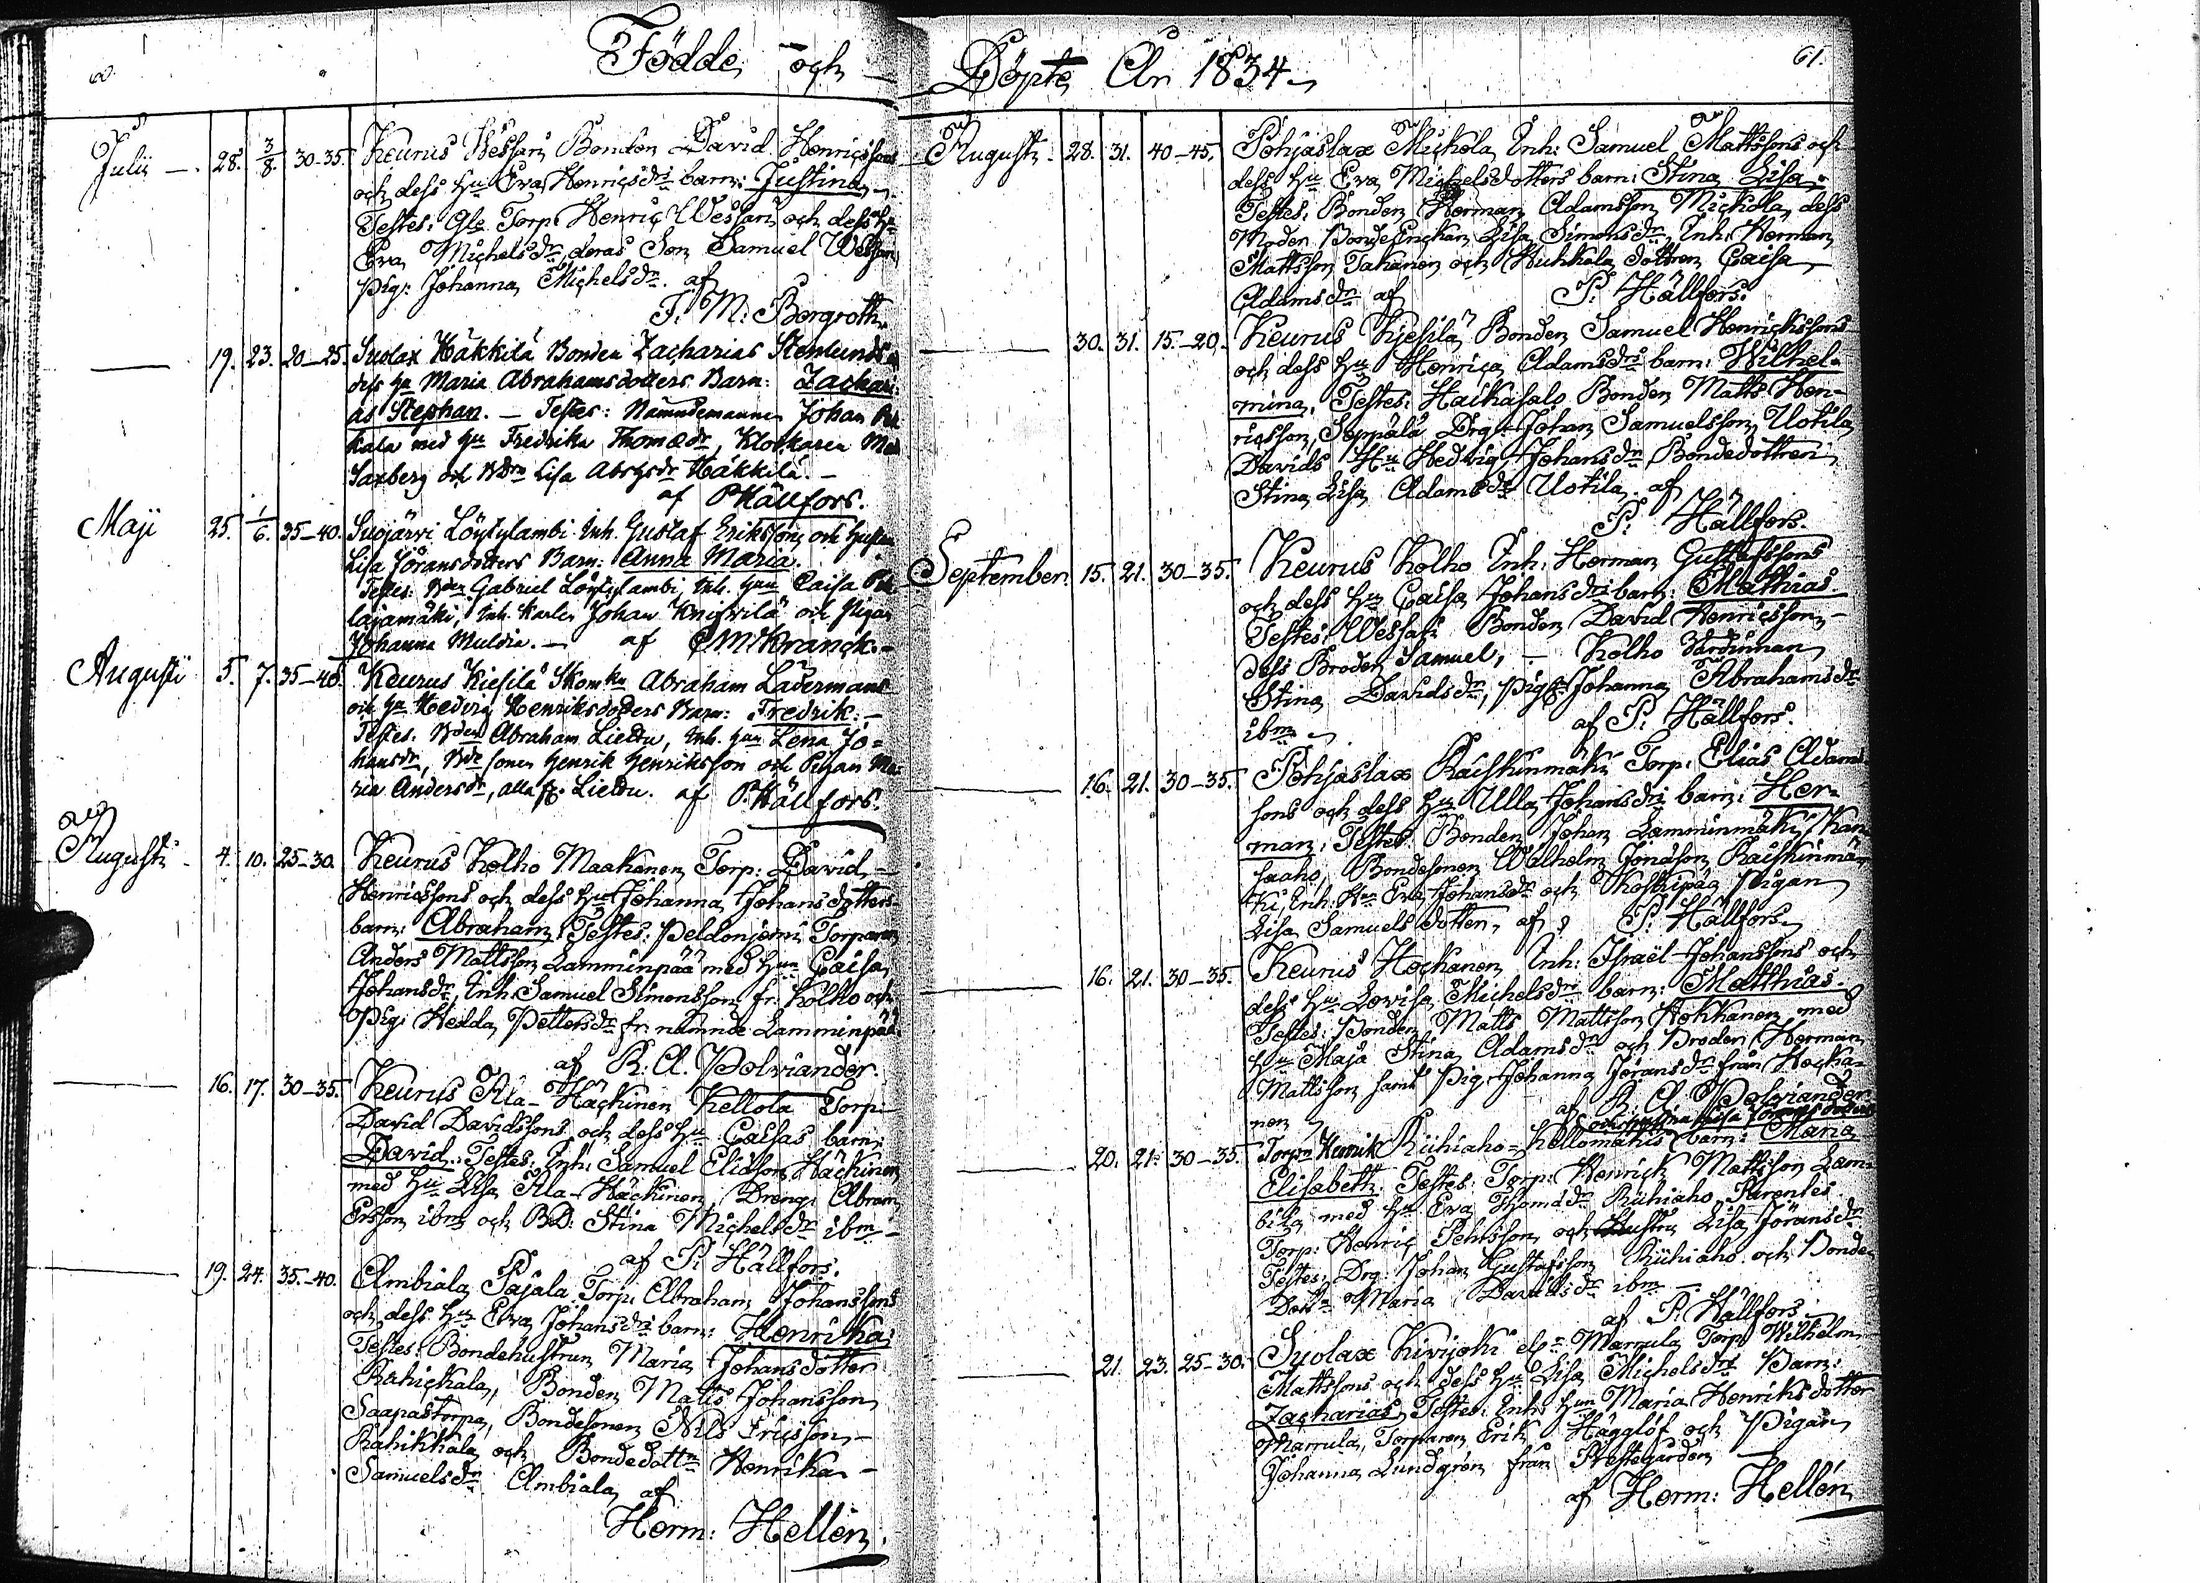 60.
Födde och
Julii 28. 3/8. 30-35. Keurus Wessari Bonden David Henricssons
och dess Hu Eva Henricsdrs barn: Justina.
Testes: Gle Torp: Henric Wessari och dess Hu
Eva Michelsdr, deras Son Samuel Wessari
Pig: Johanna Michelsdr. af
F. M: Bergroth.
19. 23. 20-25. Suolax Häkkilä Bonden Zacharias Stenlunds o
dess Hu Maria Abrahamsdotters Barn: Zachari-
as Stephan. – Testes: Nämndemannen Johan
kala med Hu Fredrika Thomædr, Klockaren
Saxberg och Lisa Häkkilä. –
af P Hällfors.
Maji 25. 1/6. 35-40. Suojärvi Löytylambi Inh. Gustaf Erikssons och Hustru
Lisa Jöransdotters Barn: Anna Maria.
Testes: Bden Gabriel Löytylambi, Inh. Hun Caisa
lajamäki, Inh. Karlen Johan och Pigan
Johanna Muldia. – af Kranck. –
Augusti 5. 7. 35-40. Keurus Kiesilä Skomkn Abraham Ladermans
och Hu Hedvig Henriksdotters Barn: Fredrik. –
Testes. Bden Abraham Lieldu, Inh. Hun Lena Jo=
hansdr, Bde sonen Henrik Henriksson och Pigan Ma-
ria Andersdr, alla fr. Lieldu. af P. Hällfors.
Augusti 4. 10. 25-30. Keurus Kolho Maahanen Torp: David
Henricssons och dess Hu Johanna Johansdotters
barn: Abraham, Testes: Peldonjemi Torparen
Anders Mattsson Lamminpää med Hun Caisa
Johansdr, Inh. Samuel Simonsson fr. Kolho och
Pig: Hedda Pettersdr fr. nämnde Lamminpää
af R. A. Polviander.
16. 17. 30-35. Keurus Ala-Häckinen Kellola Torp:
David Davidssons och dess Hu Caisas barn:
David. Testes: Inh: Samuel Eliasson Häckinen
med Hu Lisa Ala-Häckinen, Dreng: Abram
Ersson ibm och BD: Stina Michelsdr ibm –
af P. Hällfors.
19. 24. 35-40. Ambiala Pajala Torp. Abraham Johanssons
och dess Hu Eva Johansdrs barn: Henrika
Testes: Bondehustrun Maria Johansdotter
Rahickala, Bonden Matts Johansson
Saapastorpa, Bondesonen Nils Ericsson –
Rahikkala och Bondedottn Henrika –
Samuelsdr Ambiala af
Herm: Hellén.
61.
Döpte År 1834
Augusti 28. 31. 40-45. Pohjaslax Mickola Inh: Samuel Mattssons och
dess Hu Eva Michelsdotters barn: Stina Lisa.
Testes: Bonden Herman Adamsson Mickola, dess
Moder Bonde Enckan Lisa Simonsdr, Inh: Herman
Mattsson Tahanen och Huhkala dottren Caisa
Adamsdr af P. Hällfors.
30. 31. 15-20. Keurus Kiesilä Bonden Samuel Henrickssons
och dess Hu Henrica Adamsdrs barn: Wilhel-
mina, Testes: Haikasalo Bonden Matts Hen-
ricsson, Seppälä Drg: Johan Samuelsson, Uotila
Davids Hu Hedvig Johansdr Bondedottren
Stina Lisa Adamsdr Uotila. af
P. Hällfors.
September. 15. 21. 30-35. Keurus Kolho Inh: Herman Gustafssons
och dess Hu Caisa Johansdrs barn: Mathias.
Testes: Wessari Bonden David Henricsson –
dess Broder Samuel, – Kolho Värdinnan
Stina Davidsdr, Pig: Johanna Abrahamsdr
ibm af P. Hällfors.
16. 21. 30-35. Pohjaslax Raiskinmäki Torp: Elias Adams-
sons och dess Hu Ulla Johansdrs barn: Her-
man, Testes: Bonden Johan Lamminmäki, Kan-
saaho, Bondesonen Wilhelm Jonasson Raiskinmä-
ki, Inh: Hun Eva Johansdr och Koskipää Pigan
Lisa Samuelsdotter, af P. Hällfors
16. 21. 30-35. Keurus Hockanen Inh: Israël Johanssons och
dess Hu Lovisa Michelsdrs barn: Matthias.
Testes: Bonden Matts Mattsson Hokkanen med
Hu Maja Stina Adamsdr och Broder Herman
Mattsson samt Pig: Johanna Jöransdr från Hocka-
nen af R. A. Polviander
och hustrus Lisa Jöransdotters
20. 21. 30-35. Torpn Henrik Riihiaho-Kellomäkis barn: Maria
Elisabeth. Testes: Torp: Henrick Mattsson Lam-
bila med Hu Eva Thomædr Riihiaho, Parentes
Torp: Henric Pehrsson och Hustru Lisa Jöransdr
Testes: Drg: Johan Gustafsson Riihiaho och Bonde
Dottn Maria Davidsdr ibm –
af P. Hällfors.
21. 23. 25-30. Suolax Kivijoki el. Marrula Torp: Wilhelm
Mattssons och dess Hu Lisa Michelsdrs Barn:
Zacharias, Testes: Inh: Hun Maria Henriksdotter
Marrula, Torparen Erik Hägglöf och Pigan
Johanna Lundgrén från Prestegården
af Herm: Hellén